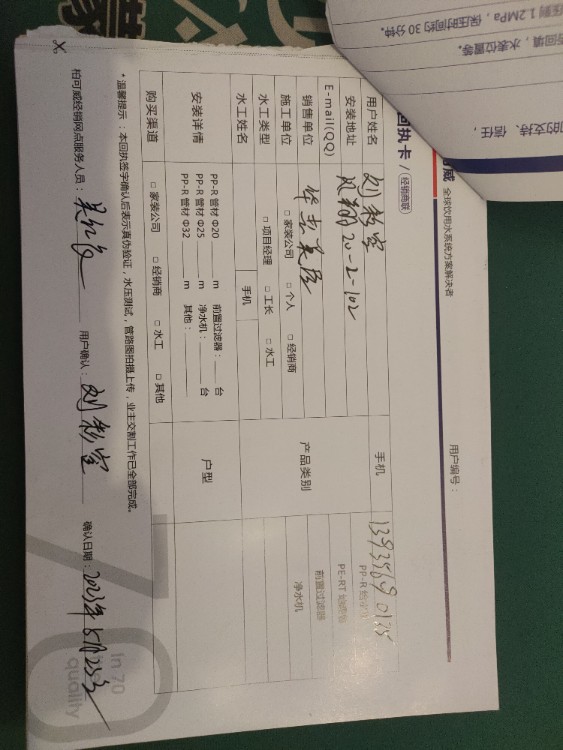 压测 1.2MPa，保压时间约 30 分钟。
水表位置等。
的支持、信任，
威 全球饮用水系统方案解决者
回执卡 / 经销商联
用户编号：
用户姓名 刘彩宝 手机
安装地址 凤翔20-2-102
E-mail(QQ)
销售单位
产品类别 PP-R 给水管
PE-RT 地暖管
前置过滤器
净水机
施工单位 □ 家装公司 □ 个人 □ 经销商
水工类型 □ 项目经理 □ 工长 □ 水工
水工姓名 手机
安装详情 PP-R 管材 Φ20 m 前置过滤器： 台
PP-R 管材 Φ25 m 净水机： 台
PP-R 管材 Φ32 m 其他：
户型
购买渠道 □ 家装公司 □ 经销商 □ 水工 □ 其他
*温馨提示：本回执签字确认后表示真伪验证，水压测试，管路图拍摄上传，业主交割工作已全部完成。
柏可威经销网点服务人员： 用户确认：刘彩宝 确认日期：2021年5月25号
70
In 70
quality